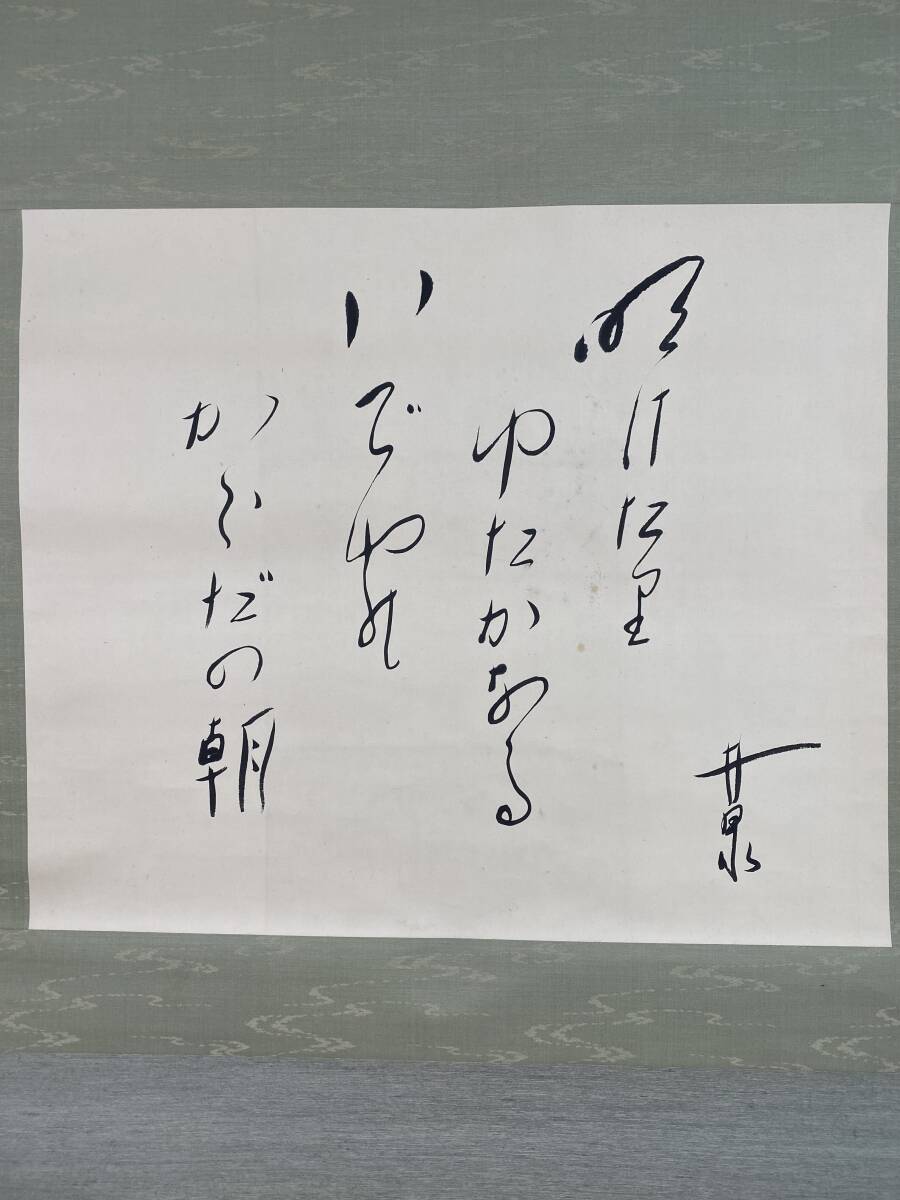 井泉
明けたり
ゆたかなる
いでゆ
からだの朝